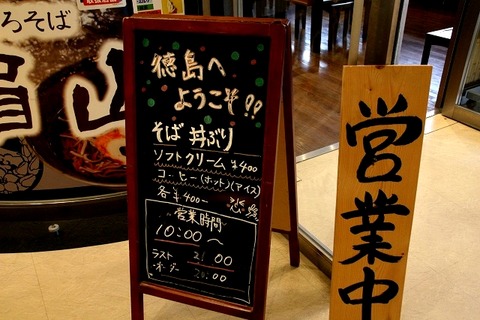 ろそば
眉山
徳島へ
ようこそ!!
そば 丼ぶり
ソフトクリーム ¥400
コーヒー(ホット)(アイス)
各¥400-
営業時間
10:00〜
ラスト 21:00
オーダー 20:00
営業中